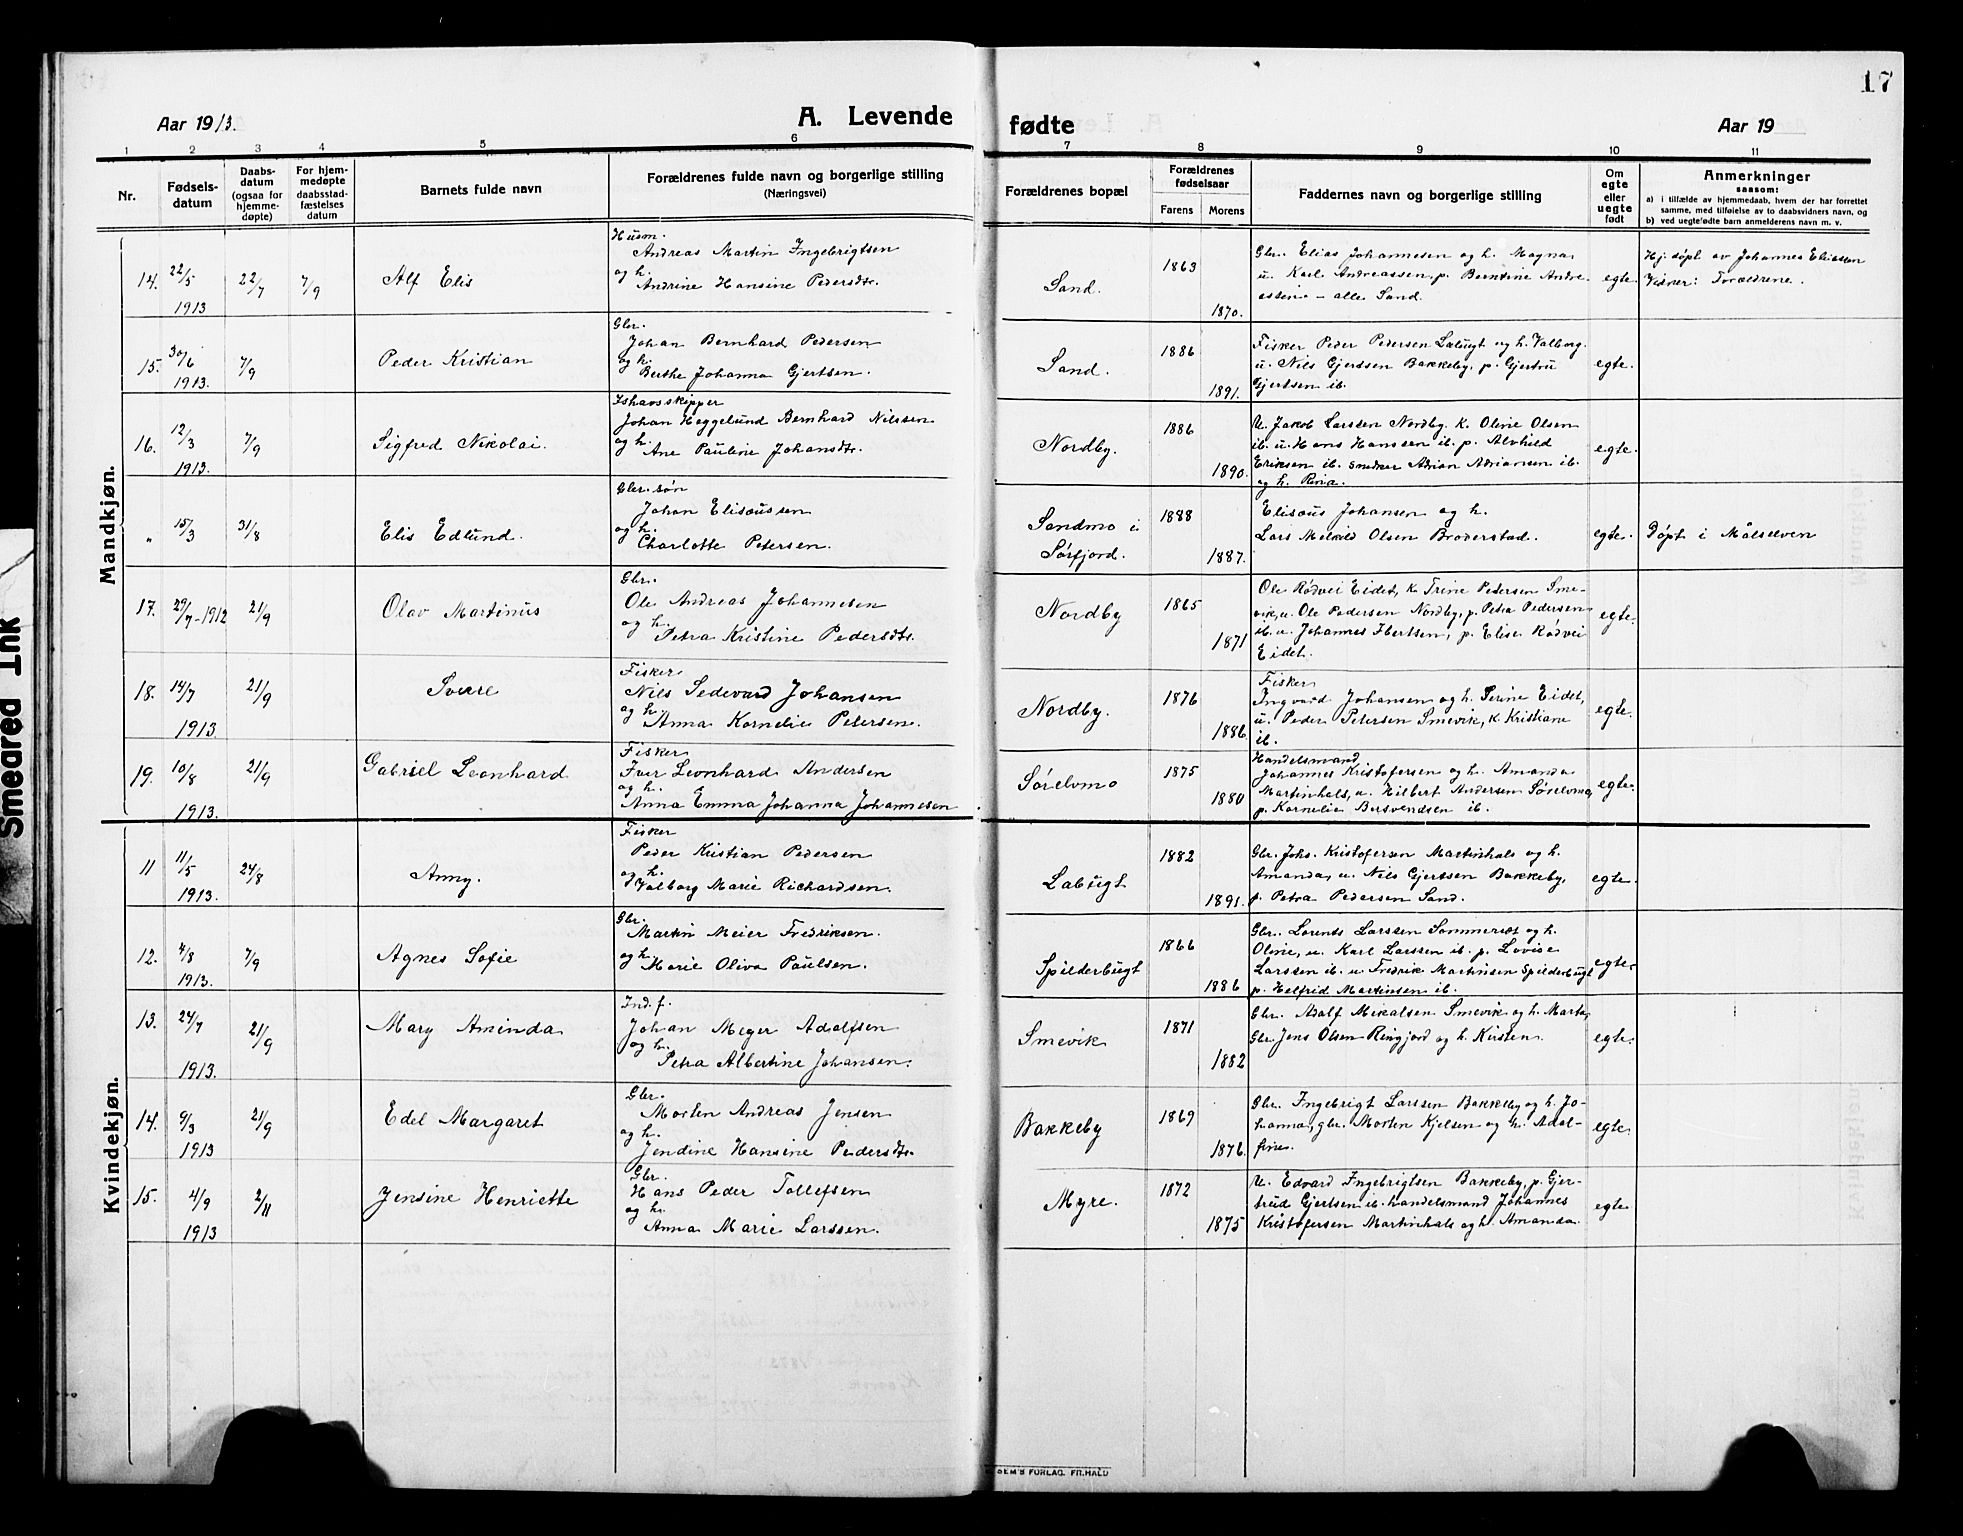 17
Aar 1913.
A. Levende
fødte
Aar 19
1 2 3 4 5 6 7 8 9 10 11
Nr.
Fødsels-
datum
Daabs-
datum
(ogsaa for
hjemme-
døpte)
For hjem-
medøpte
daabsstad-
fæstelses
datum
Barnets fulde navn
Forældrenes fulde navn og borgerlige stilling
(Næringsvei)
Forældrenes bopæl
Forældrenes
fødselsaar
Farens Morens
Faddernes navn og borgerlige stilling
Om
egte
eller
uegte
født
Anmerkninger
saasom:
a) i tilfælde av hjemmedaab, hvem der har forrettet
samme, med tilføielse av to daabsvidners navn, og
b) ved uegtefødte barn anmelderens navn m. v.
Mandkjøn.
14. 22/5 1913 22/7 7/9 Alf Elis
Husm.
Andreas Martin Ingebrigtsen
og h.
Andrine Hansine Pedersdtr.
Sand. 1863 1870.
Gbr. Elias Johannesen og h. Magna
u. Karl Andreassen, p. Berntine Andre-
assen – alle Sand.
egte.
Hj. døpt av Johannes Eliassen
Vidner: Forældrene.
15. 30/6 1913. 7/9 Peder Kristian
Gbr.
Johan Bernhard Pedersen
og h.
Berthe Johanna Gjertsen.
Sand. 1886 1891.
Fisker Peder Pedersen Labugt og h. Valborg.
u. Nils Gjertsen Bakkeby, p. Gjertru
Gjertsen ib.
egte.
16. 12/3 1913. 7/9 Sigfred Nikolai.
Ishavsskipper
Johan Heggelund Bernhard Nilssen
og h.
Ane Pauline Johansdtr.
Nordby. 1886 1890.
U. Jakob Larssen Nordby. K. Oline Olsen
ib. u. Hans Hanssen ib. p. Alvhild
Eriksen ib. snedker Adrian Adriansen ib.
og h. Rina.
egte.
" 15/3 31/8 Elis Edlund.
Gbr. søn
Johan Elisæussen
og h.
Charlotte Petersen.
Sandmo i
Sørfjord. 1888 1887.
Elisæus Johansen og h.
Lars Melkild Olsen Broderstad.
egte.
Døpt i Målselven
17. 29/7-1912 21/9 Olav Martinus
Gbr.
Ole Andreas Johannesen
og h.
Petra Kristine Pedersdtr.
Nordby 1865 1871
Ole Rødvei Eidet, k. Trine Petersen Sme-
vik, u. Ole Pedersen Nordby, p. Petra Pedersen
ib. u. Johannes Ibertsen, p. Elise Rødvei
Eidet.
egte.
18. 14/7 1913. 21/9 Sverre
Fisker
Nils Sedevard Johansen
og h.
Anna Kornelie Petersen.
Nordby. 1876 1886.
Fisker
Ingvard Johansen og h. Serine Eidet,
u. Peder Petersen Smevik, k. Kristiane
ib.
egte.
19. 10/8 1913. 21/9 Gabriel Leonhard
Fisker
Iver Leonhard Andersen
og h.
Anna Emma Johanna Johannesen
Sørelvmo 1875 1880
Handelsmand
Johannes Kristofersen og h. Amanda
Martinhals, u. Hilbert Andersen Sørelvmo,
p. Kornelie Bersvendsen ib.
egte.
Kvindekjøn.
11 11/5 1913. 24/8 Anny.
Fisker
Peder Kristian Pedersen
og h.
Valborg Marie Richardsen.
Labugt 1882 1891.
Gbr. Johs. Kristofersen Martinhals og h.
Amanda, u. Nils Gjertsen Bakkeby,
p. Petra Pedersen Sand.
egte.
12. 4/8 1913. 7/9 Agnes Sofie
Gbr.
Martin Meier Fredriksen.
og h.
Marie Oliva Paulsen.
Spilderbugt 1866 1886
Gbr. Lorents Larssen Sommersæt og h.
Oline, u. Karl Larssen ib. p. Lovise
Larssen ib. u. Fredrik Martinsen Spilderbugt
p. Helfrid Martinsen ib.
egte.
13. 24/7 1913. 21/9 Mary Aminda
Ind. f.
Johan Meyer Adolfsen
og h.
Petra Albertine Johansen.
Smevik 1871 1882
Gbr. Adolf Mikalsen Smevik og h. Marta,
Gbr. Jens Olsen Ringjord og h. Kirsten.
egte.
14. 9/3 1913 21/9 Edel Margaret
Gbr.
Morten Andreas Jensen
og h.
Jendine Hansine Pedersdtr.
Bakkeby 1869 1876.
Gbr. Ingebrigt Larssen Bakkeby og h. Jo-
hanna, gbr. Morten Kjelsen og h. Adol-
fine.
egte.
15. 4/9 1913 2/11 Jensine Henriette
Gbr.
Hans Peder Tollefsen
og h.
Anna Marie Larssen.
Myre. 1872 1875
U. Edvard Ingebrigtsen Bakkeby, p. Gjer-
trud Gjertsen ib. handelsmand Johannes
Kristofersen Martinhals og h. Amanda.
egte
SEM'S FORLAG. FR. HALD
Smeared Ink